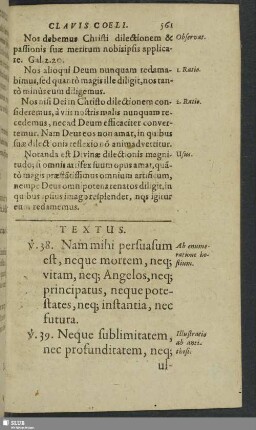 CLAVIS COELI. 561
Nos debemus Christi dilectionem &
passionis suæ meritum nobisipsis applica-
re. Gal. 2.20.
Observat.
Nos alioqui Deum nunquam redama-
bimus, sed quantò magis ille diligit, nos tan-
tò minùs eum diligemus.
1. Ratio.
Nos nisi Dei in Christo dilectionem con-
sideremus, à vitiis nostris malis nunquam re-
cedemus, nec ad Deum efficaciter conver-
temur. Nam Deus eos non amat, in quibus
suæ dilectionis reflexionē animadvertitur.
2. Ratio.
Notanda est Divinæ dilectionis magni-
tudo, si omnis artifex suum opus amat, quā-
tò magis præstātissimus omnium artificum,
nempe Deus omnipotens renatos diligit, in
quibus ipsius imago resplendet, nos igitur
eum redamemus.
Usus.
TEXTUS.
℣. 38. Nam mihi persuasum
est, neque mortem, neq;
vitam, neq; Angelos, neq;
principatus, neque pote-
states, neq; instantia, nec
futura.
Ab enume-
ratione ho-
stium.
℣. 39. Neque sublimitatem,
nec profunditatem, neq;
ul-
Illustratio
ab anti-
thesi.
SLUB